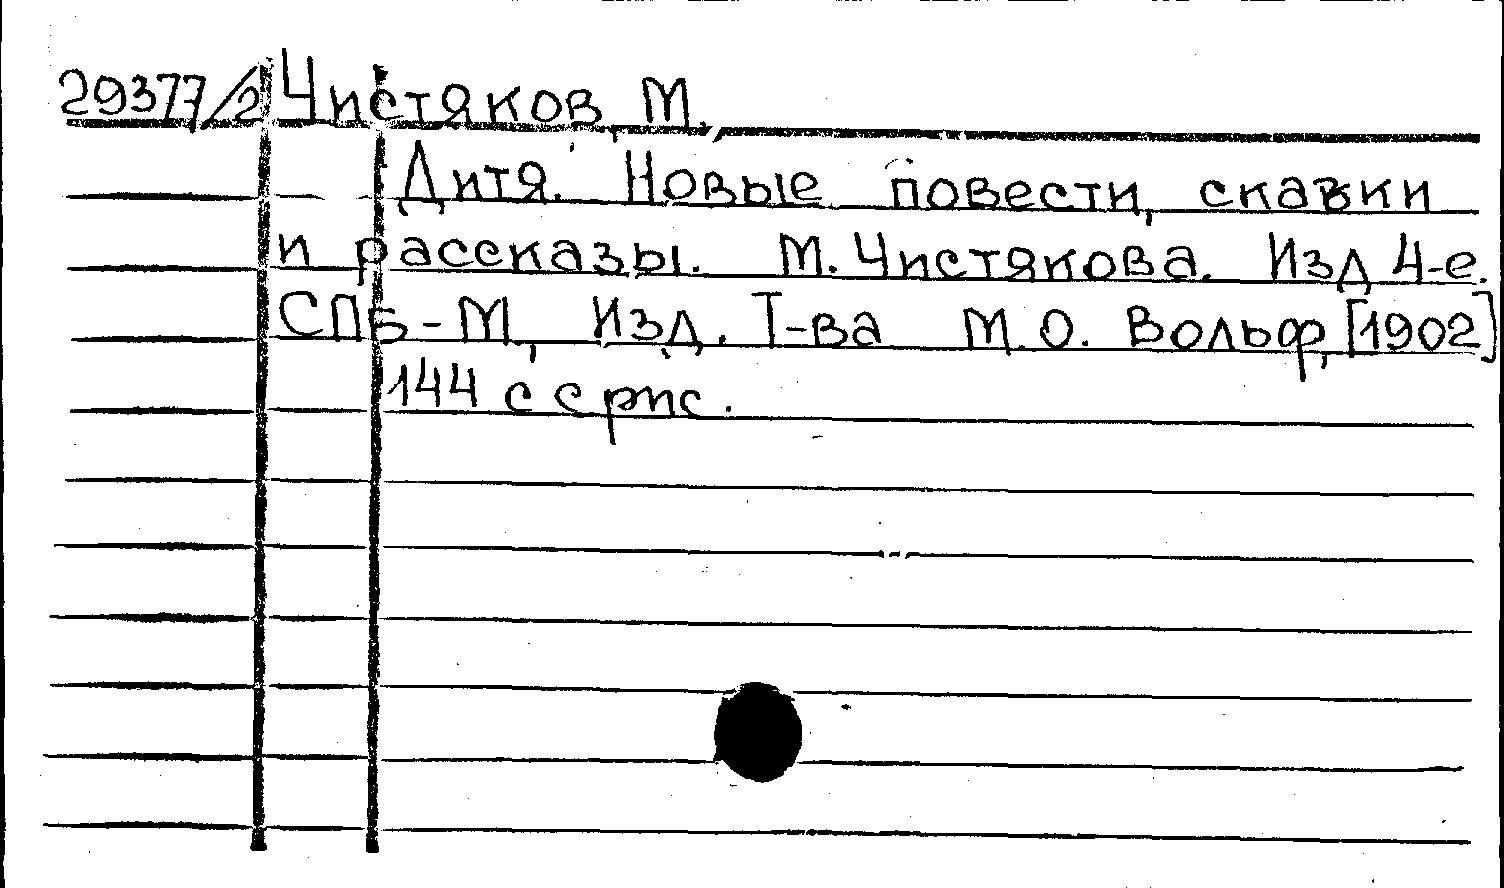 29377/2 Чистяков, М.
Дитя. Новые повести, сказки
и рассказы. М. Чистякова. Изд 4-е.
СПБ-М, Изд. Т-ва М.О. Вольф, [1902]
144 с с рис.